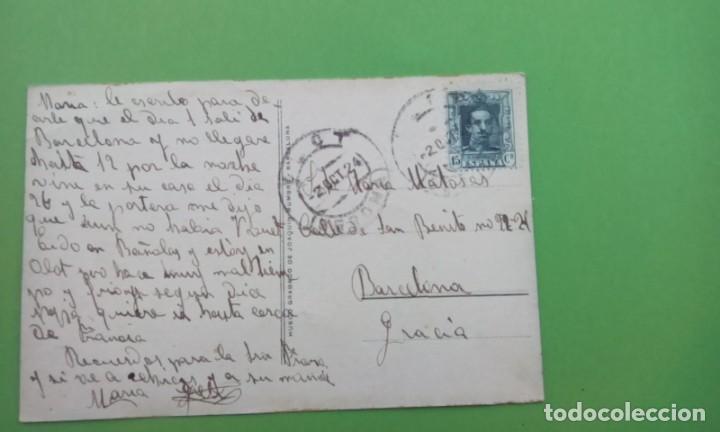 Maria: le escribo para de
cirle que el dia 1 sali de
Barcelona y no llegare
hasta 12 por la noche
vine en su casa el dia
26 y la portera me dijo
que aun no habia
en Bañolas y estoy en
Olot pero hace muy mal tiem
po y segun dia
papa quiere ir hasta cerca
de Francia
Recuerdos para la Sra
y si ve a y a su mamá
Maria
MUSEO GRABADO DE JOAQUIN BARCELONA
OLOT
-2 OCT. 24
GERONA
15 Cs
Maria Matosas
Calle de San Benito no 22-24
Barcelona
Gracia
todocoleccion.net